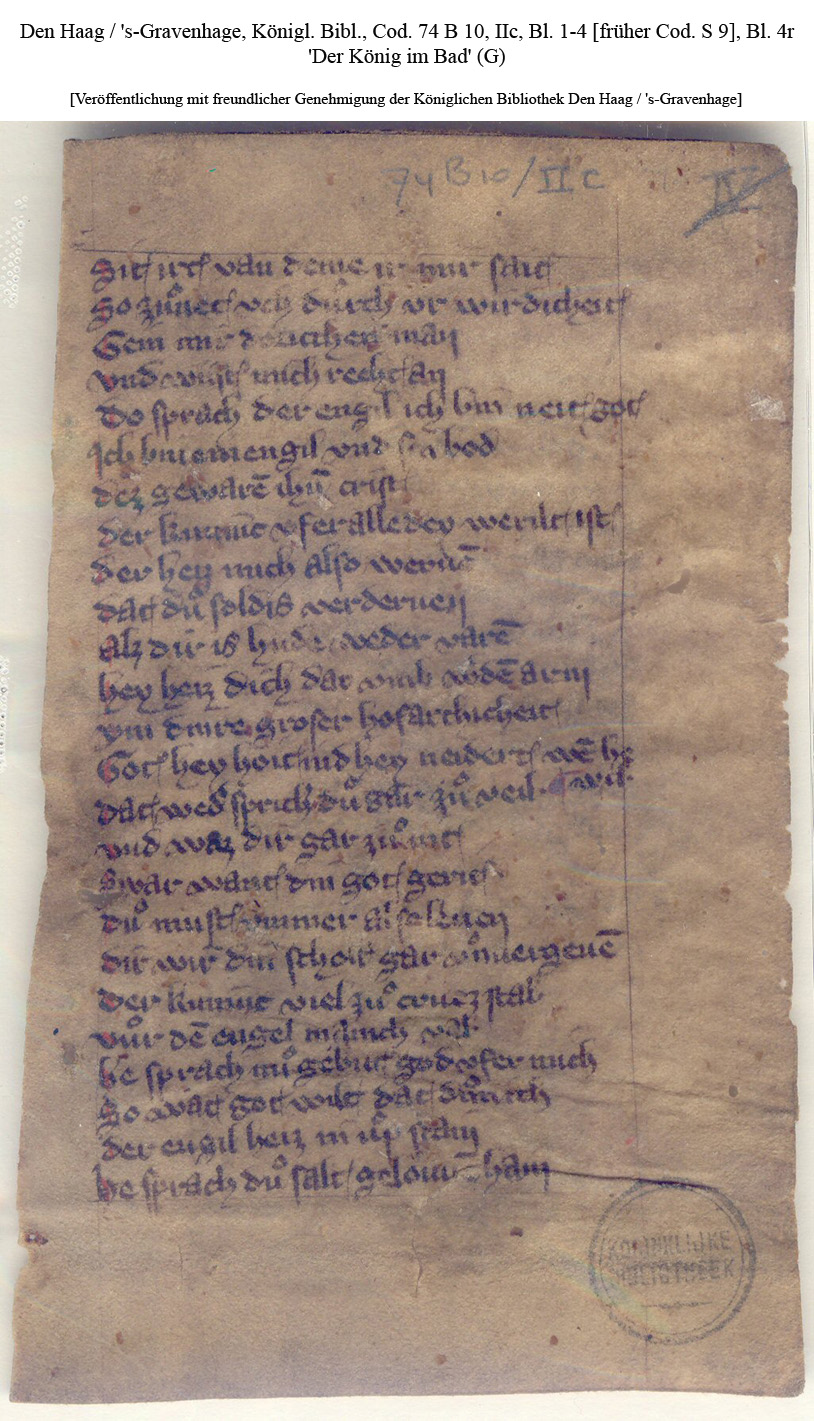 Den Haag / 's-Gravenhage, Königl. Bibl., Cod. 74 B 10, IIc, Bl. 1-4 [früher Cod. S 9], Bl. 4r
'Der König im Bad' (G)
[Veröffentlichung mit freundlicher Genehmigung der Königlichen Bibliothek Den Haag / 's-Gravenhage]
74 B 10 / II C
IV
Sit irt van deme ir mir sait
So zuͦnet vch durch vr wirdicheit
Gein mir man
vnd mich recht an
Do sprach der engil ich bin neit got
Ich bin ein engil vnd bod
dez gewarē ihū crist
der kumt vfer alle dey werilt ist
der hey mich also
dat duͦ soldis verderuen
alz dir is hude weder varē
hey heiz dich dar vmb arm
vm dinre groser hofarthicheit
Got hey hoit nd hey neidert wē he
wil
dat sprich duͦ gar zuͦ veil
vnd waz dir gar
Swar want din got
duͦ must ummer also leuen
dir wir din scholt gar geuē
Der kumt viel zuͦ cruez stal
vuͦr dē engel
he sprach nuͦ gebut god vfer mich
So wat got wilt dat
der engil heiz in uͦf stan
he sprach duͦ salt han
KONINKLIJKE
BIBLIOTHEEK